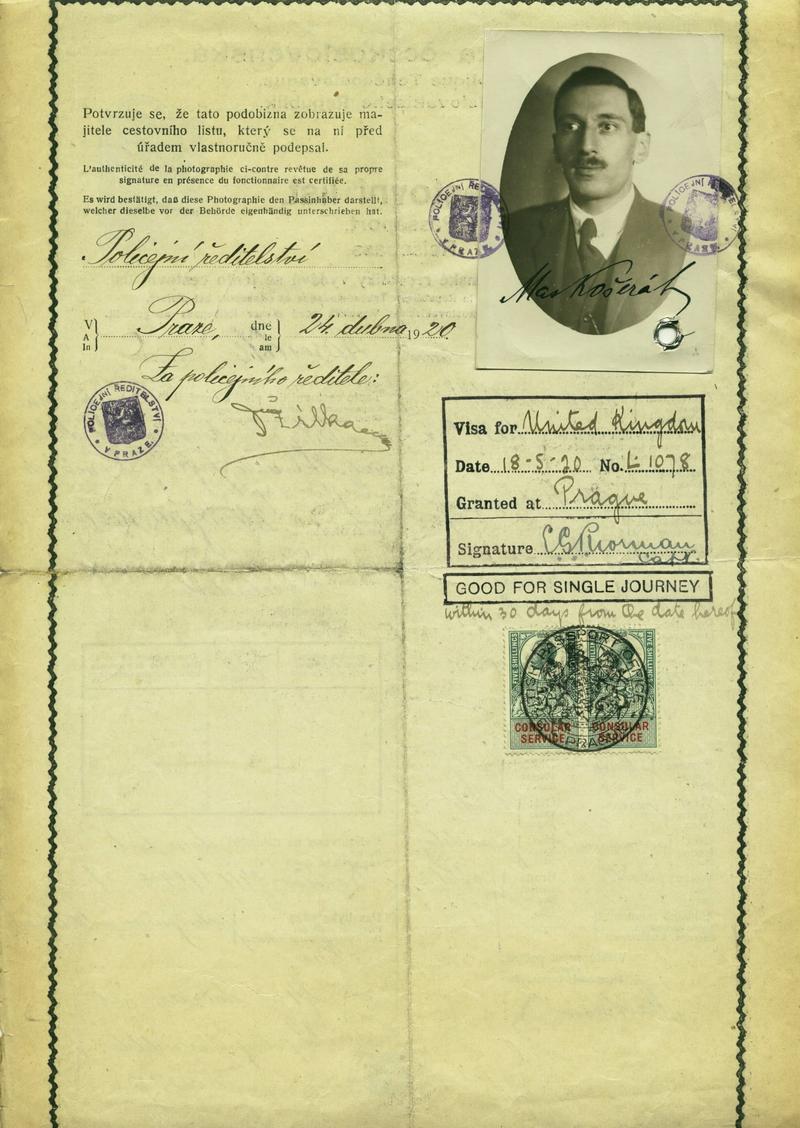 Potvrzuje se, že tato podobizna zobrazuje ma-
jitele cestovního listu, který se na ní před
úřadem vlastnoručně podepsal.
L'authenticité de la photographie ci-contre revêtue de sa propre
signature en présence du fonctionnaire est certifiée.
Es wird bestätigt, daß diese Photographie den Passinhaber darstellt,
welcher dieselbe vor der Behörde eigenhändig unterschrieben hat.
Policejní ředitelství
V
A
In
Praze,
dne
le
am
24. dubna 1920.
Za policejního ředitele:
POLICEJNÍ ŘEDITELSTVÍ
V PRAZE.
POLICEJNÍ
V PRAZE.
POLICEJNÍ
V PRAZE.
Max Košerák
Visa for United Kingdom
Date 18-5-20 No. L 1078
Granted at Prague
Signature
Capt.
GOOD FOR SINGLE JOURNEY
within 30 days from the date hereof
FIVE SHILLINGS
FIVE SHILLINGS
PASSPORT OFFICE
CONSULAR SERVICE
CONSULAR SERVICE